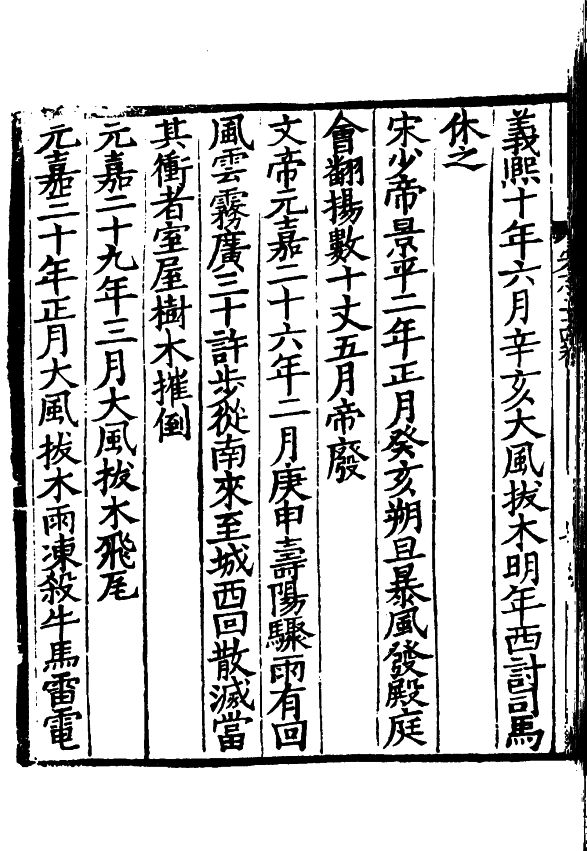 義熙十年六月辛亥大風拔木明年西討司馬
休之
宋少帝景平二年正月癸亥朔旦暴風發殿庭
會翻揚數十丈五月帝廢
文帝元嘉二十六年二月庚申壽陽驟雨有回
風雲霧廣三十許步從南來至城西回散滅當
其衝者室屋樹木摧倒
元嘉二十九年三月大風拔木飛瓦
元嘉三十年正月大風拔木雨凍殺牛馬雷電